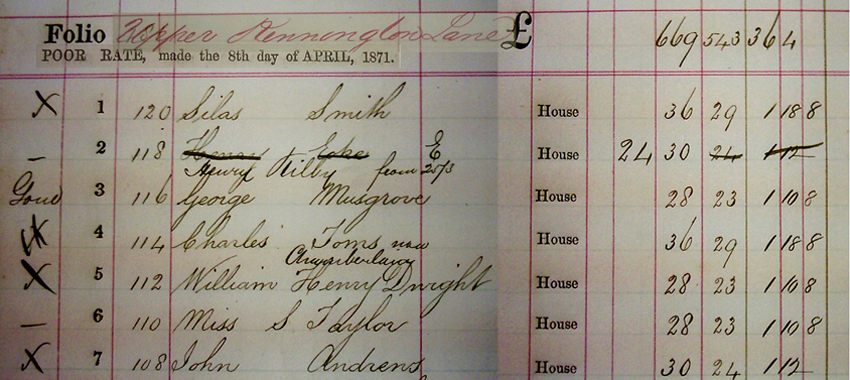 Folio Upper Kennington Lane £ 669 543 36 4
POOR RATE, made the 8th day of APRIL, 1871.
X 1 120 Silas Smith House 36 29 1 18 8
– 2 118 Henry E House 24 30 24 1 12
Henry Kilby from 25/3
Gone 3 116 George Musgrove House 28 23 1 10 8
4 114 Charles Toms now House 36 29 1 18 8
Chamberlain
X 5 112 William Henry Dwight House 28 23 1 10 8
– 6 110 Miss S Taylor House 28 23 1 10 8
X 7 108 John Andrews House 30 24 1 12